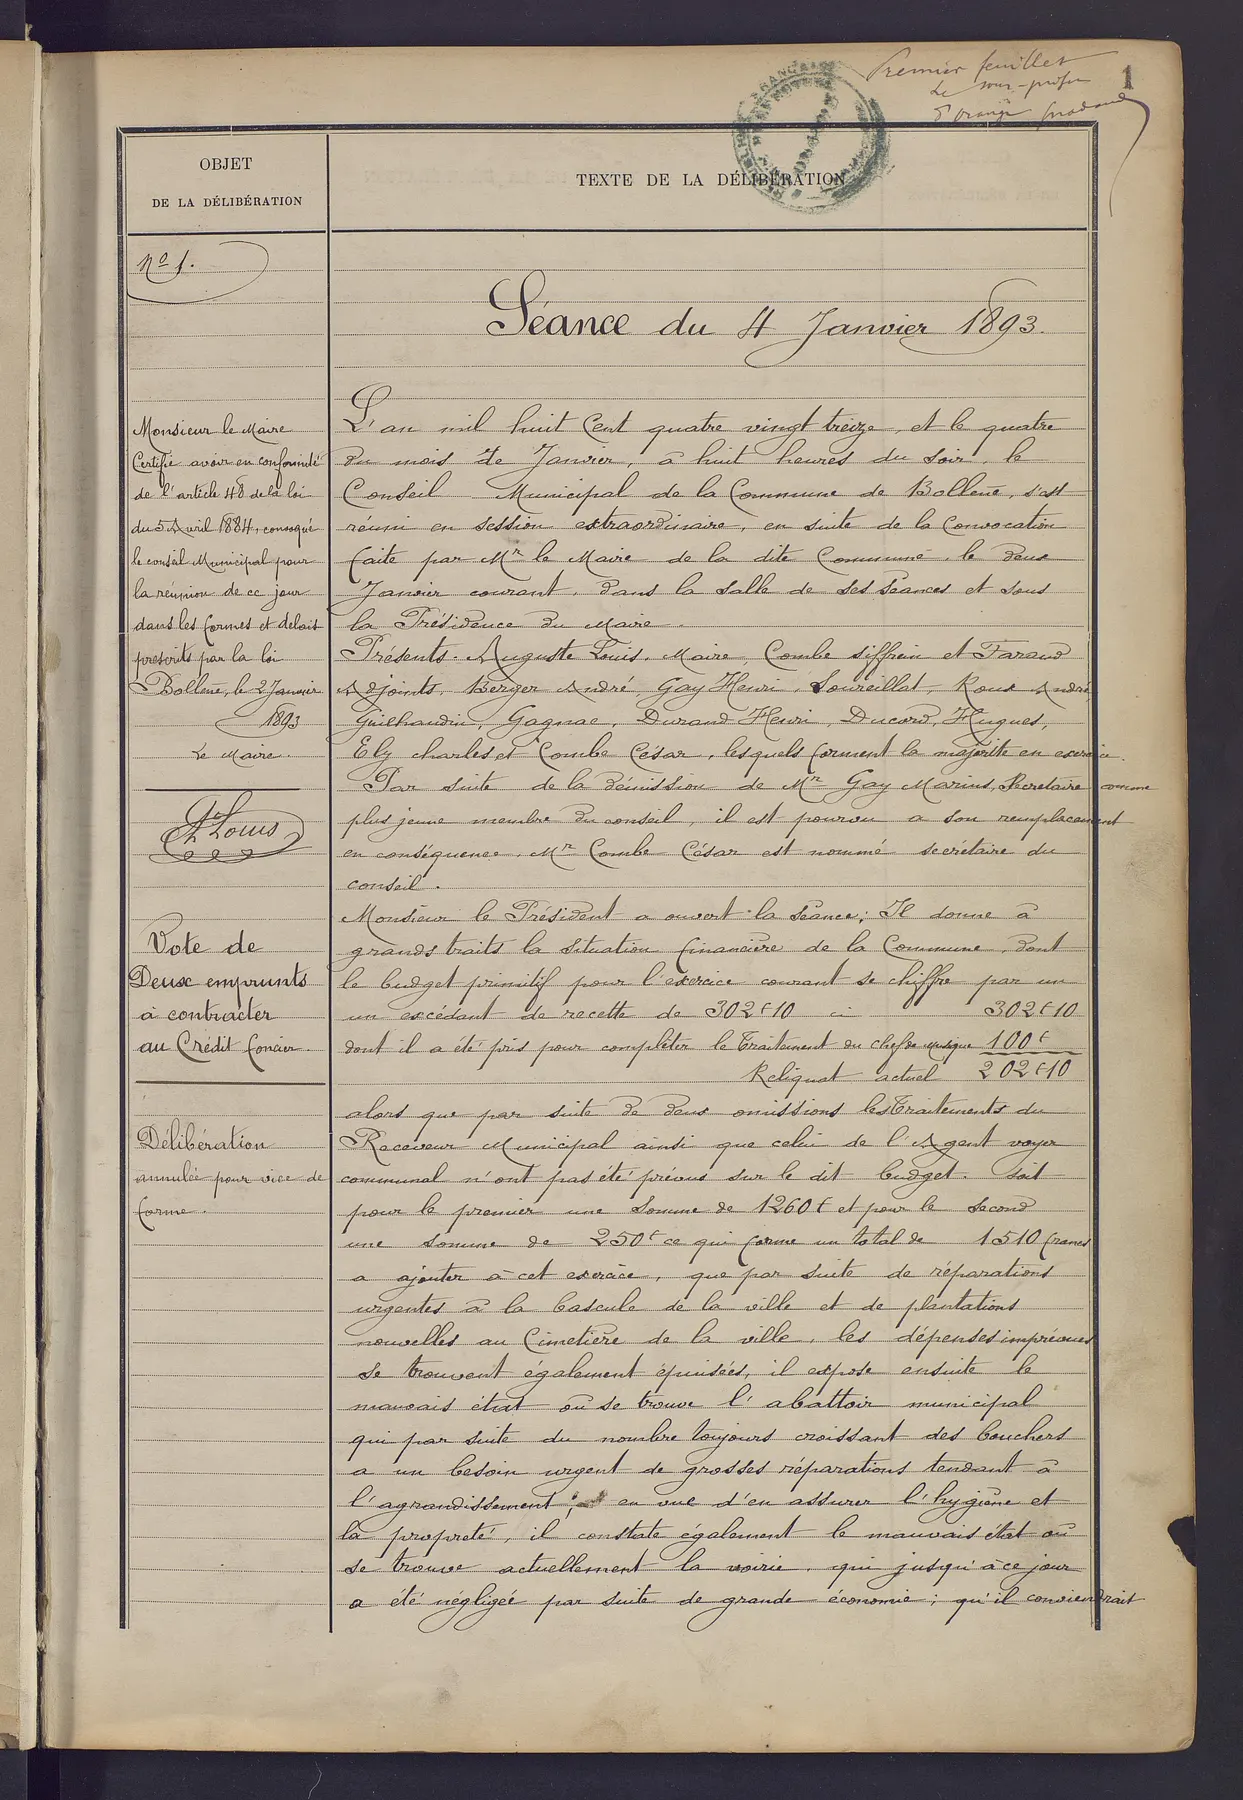 Premier feuillet
Le sous-préfet
d'Orange
1
OBJET
DE LA DÉLIBÉRATION
TEXTE DE LA DÉLIBÉRATION
No 1.
Séance du 4 Janvier 1893.
Monsieur le Maire
Certifie avoir en conformité
de l'article 48 de la loi
du 5 Avril 1884, convoqué
le conseil Municipal pour
la réunion de ce jour
dans les formes et delais
prescrits par la loi
Bollène, le 2 Janvier
1893
Le Maire.
A. Louis
Vote de
Deux emprunts
a contracter
au Crédit foncier
Délibération
annulée pour vice de
forme.
L'an mil huit Cent quatre vingt treize, et le quatre
du mois de Janvier, à huit heures du soir, le
Conseil Municipal de la Commune de Bollène, s'est
réuni en session extraordinaire, en suite de la Convocation
faite par Mr le Maire de la dite Commune le deux
Janvier courant, dans la salle de ses séances et sous
la Présidence du Maire.
Présents. Auguste Louis, Maire, Combe Siffrein et Faraud
Adjoints, Berger André, Gay Henri, Soureillat, Roux André,
Guilhaudin, Gagnac, Durand Henri, Ducord, Hugues,
Ely Charles et Combe César, lesquels forment la majorité en exercice.
Par suite de la démission de Mr Gay Marius, Secretaire comme
plus jeune membre du conseil, il est pourvu a son remplacement
en conséquence, Mr Combe César est nommé secrétaire du
conseil.
Monsieur le Président a ouvert la séance; Il donne à
grands traits la situation financière de la Commune, dont
le budget primitif pour l'exercice courant se chiffre par un
un excédant de recette de 302f10 ci 302f10
dont il a été pris pour compléter le Traitement du chef de Musique 100f
Reliquat actuel 202f10
alors que par suite de deux omissions les Traitements du
Receveur Municipal ainsi que celui de l'Agent voyer
communal n'ont pas été prévus sur le dit budget. Soit
pour le premier une somme de 1260f et pour le second
une somme de 250f ce qui forme un total de 1510 francs
a ajouter à cet exercice, que par suite de réparations
urgentes à la bascule de la ville et de plantations
nouvelles au Cimetière de la ville, les dépenses imprévues
se trouvent également épuisées, il expose ensuite le
mauvais état où se trouve l'abattoir municipal
qui par suite du nombre toujours croissant des bouchers
a un besoin urgent de grosses réparations tendant à
l'agrandissement; en vue d'en assurer l'hygiène et
la propreté, il constate également le mauvais état où
se trouve actuellement la voirie, qui jusqu'à ce jour
a été négligée par suite de grande économie; qu'il conviendrait